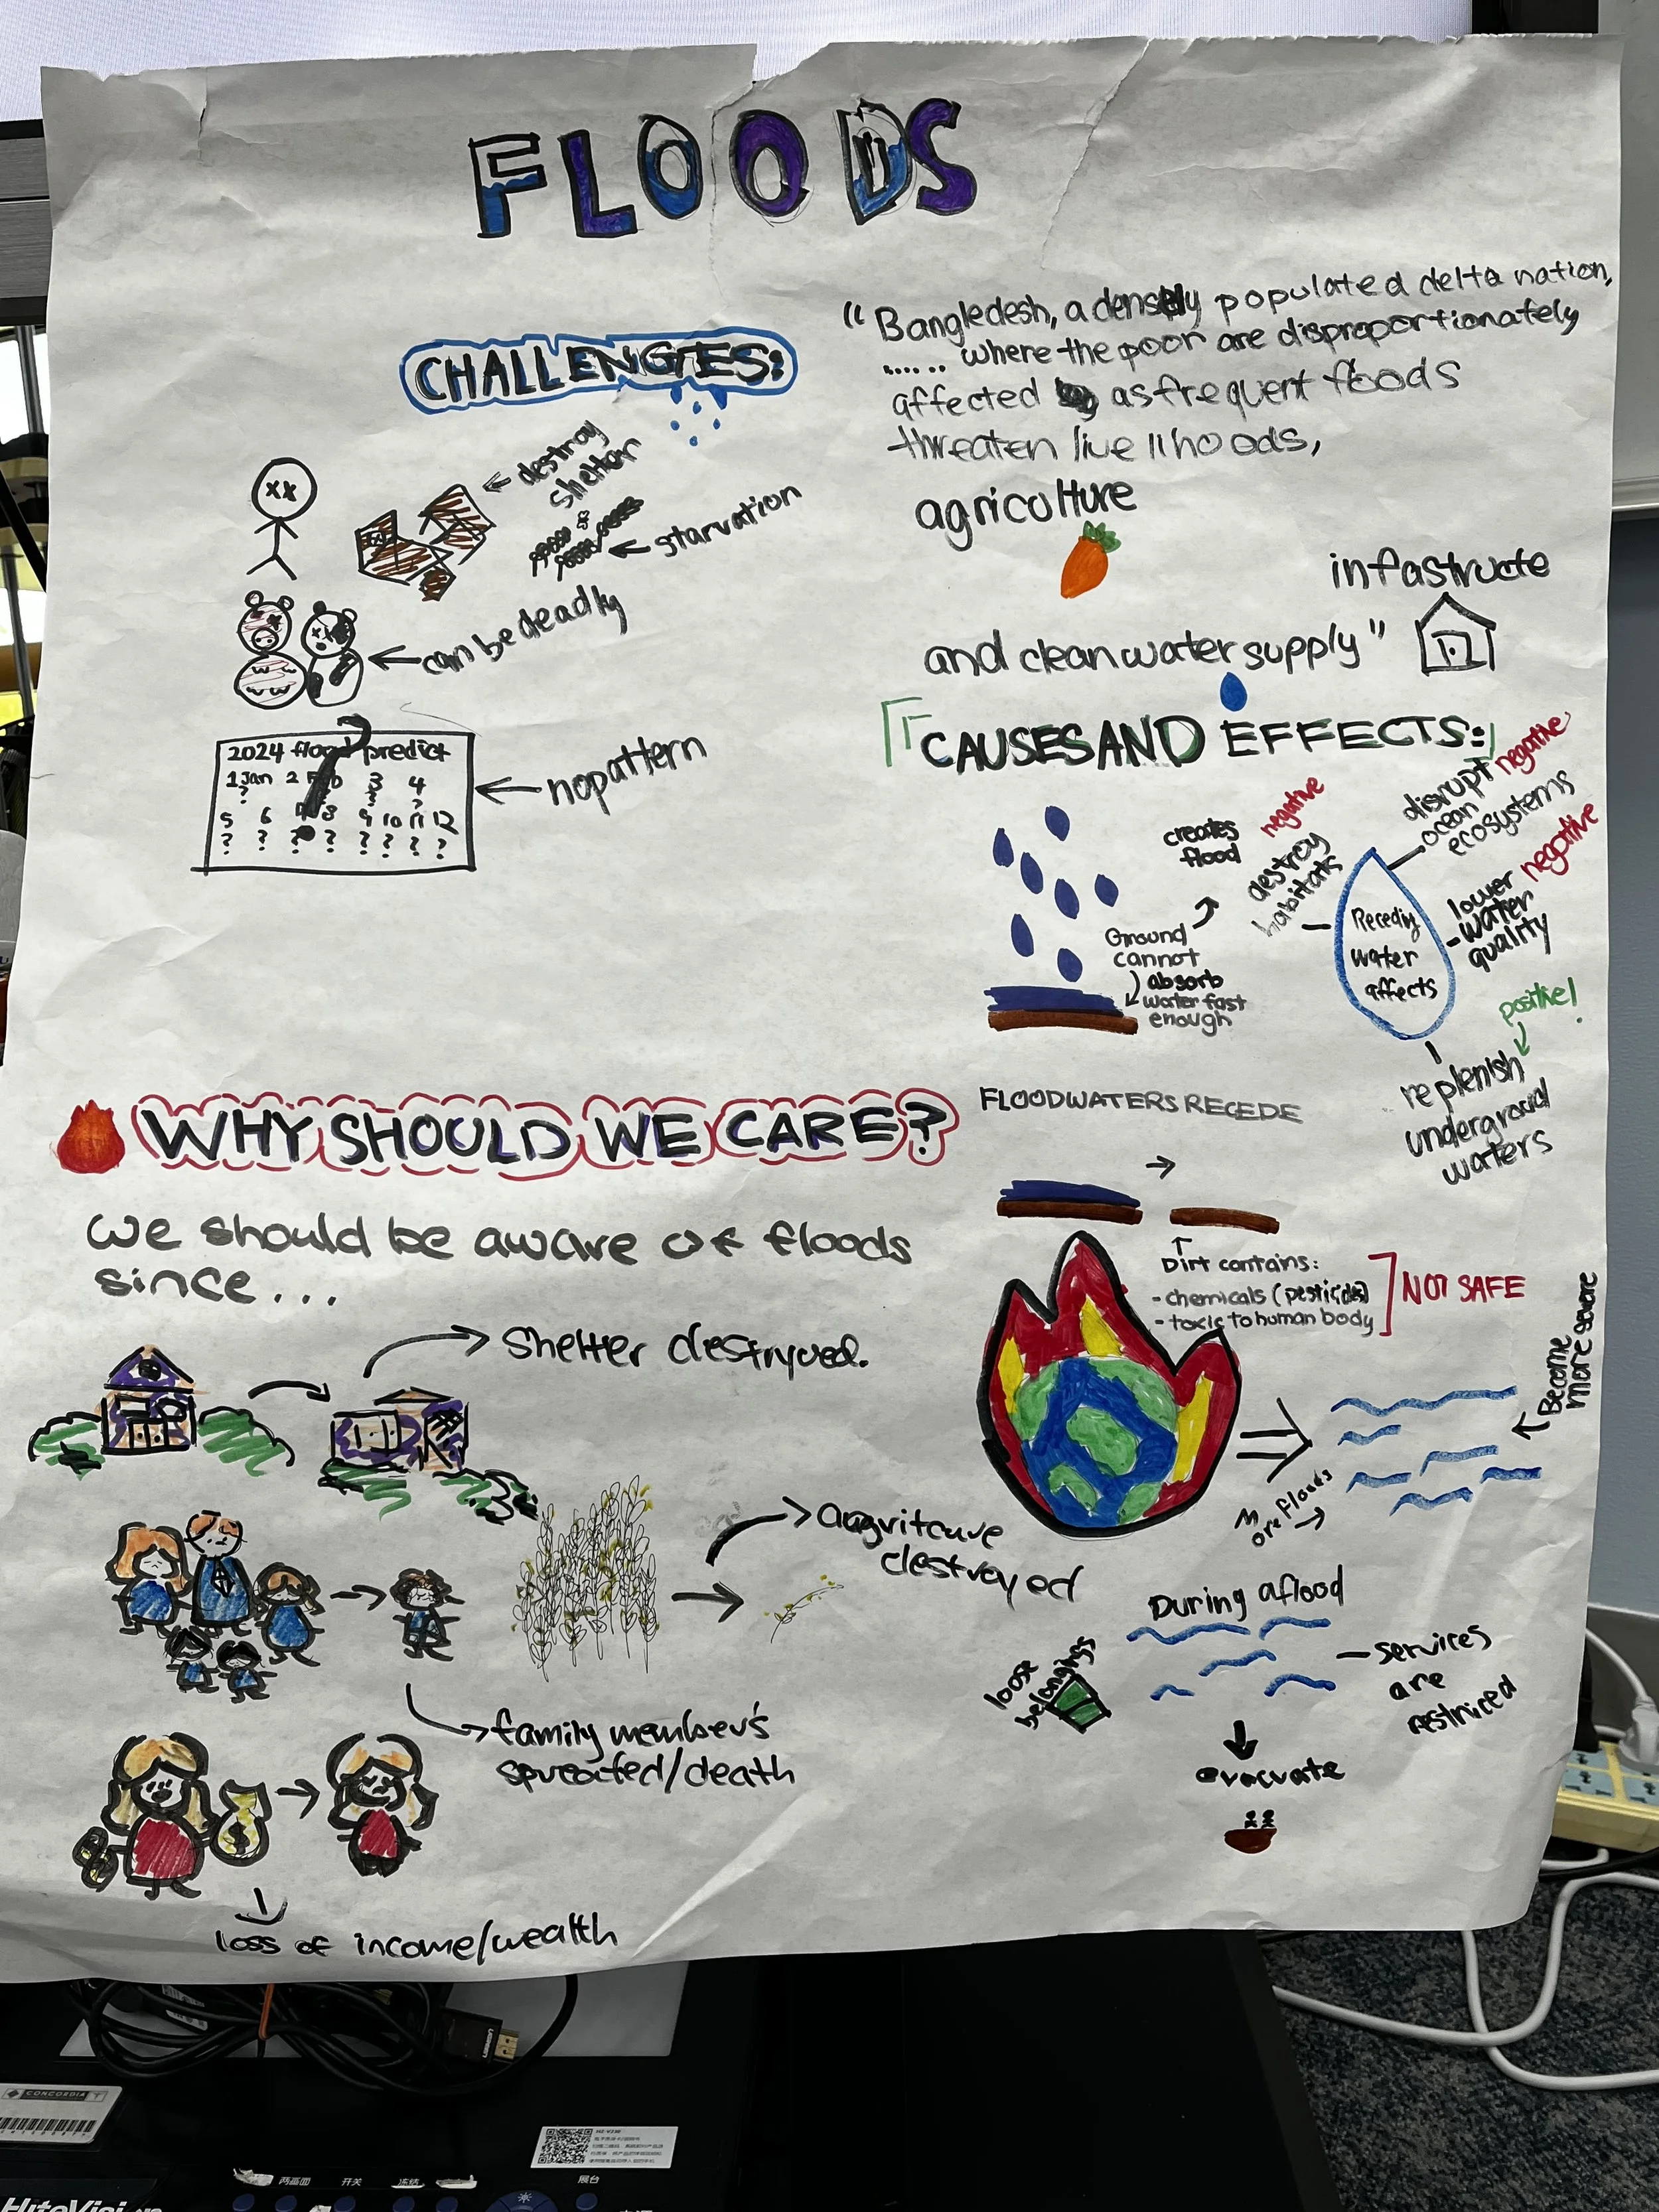 FLOODS
CHALLENGES:
destroy
shelter
starvation
can be deadly
2024 flood predict
1 Jan 2 Feb 3 4
? ? ?
5 6 8 9 10 11 12
? ? ? ? ? ? ?
no pattern
"Bangledesh, a densely populated delta nation,
...... where the poor are disproportionately
affected as frequent floods
threaten livelihoods,
agricolture
infastructe
and clean water supply"
CAUSES AND EFFECTS:
creates
flood
Ground
cannot
absorb
water fast
enough
negative
destroy
habitats
disrupt
ocean
ecosystems
negative
lower
water
quality
negative
Receding
water
affects
positive!
replenish
underground
waters
FLOODWATERS RECEDE
Dirt contains:
- chemicals (pesticides)
- toxic to human body
NOT SAFE
More floods
Become
more severe
During a flood
loose
belongings
- services
are
restriced
evacuate
WHY SHOULD WE CARE?
we should be aware of floods
since...
Shelter destryoed.
destroyed
family member's
death
loss of income/wealth
CONCORDIA
UGREEN
两画面
开关
冻结
展台
HiteVision